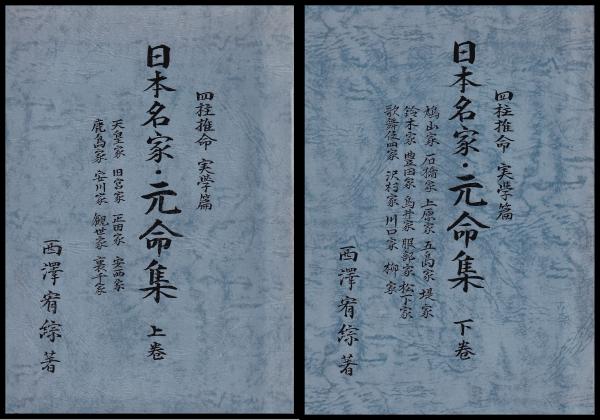 四柱推命 実学篇
日本名家・元命集 上巻
天皇家 旧宮家 正田家 安西家
鹿島家 安川家 観世家 裏千家
西澤宥綜著
四柱推命 実学篇
日本名家・元命集 下巻
鳩山家 石橋家 上原家 五島家 堤家
鈴木家 豊田家 鳥井家 服部家 松下家
歌舞伎四家 沢村家 川口家 柳家
西澤宥綜著